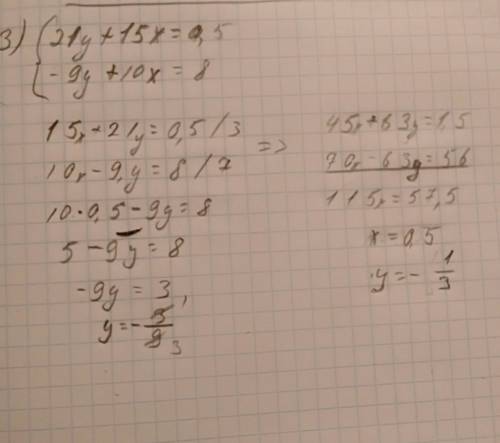 3) { 21y + 15x = 0,5
-9y + 10x = 8
15x + 21y = 0,5 / 3
10x - 9y = 8 / 7
=>
45x + 63y = 1,5
70x - 63y = 56
115x = 57,5
x = 0,5
y = - 1/3
10 · 0,5 - 9y = 8
5 - 9y = 8
-9y = 3
y = - 3/9 3